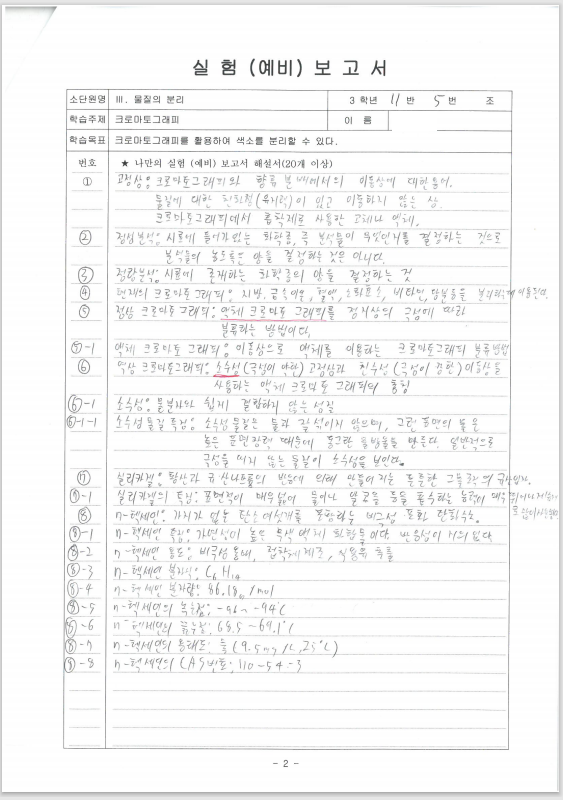 실 험 (예비) 보 고 서
소단원명 Ⅲ. 물질의 분리 3 학년 11 반 5 번 조
학습주제 크로마토그래피 이 름
학습목표 크로마토그래피를 활용하여 색소를 분리할 수 있다.
번호 ★ 나만의 실험 (예비) 보고서 해설서(20개 이상)
① 고정상: 크로마토그래피와 향류 분배에서의 이동상에 대한용어.
물질에 대한 친화력 이 있고 이동하지 않는 상.
크로마토그래피에서 흡착제로 사용한 고체나 액체.
② 정성분석: 시료에 들어가있는 화학종, 즉 분석물이 무엇인지를 결정하는 것으로
분석물의 농도혹은 양을 결정하는 것은 아니다.
③ 정량분석: 시료에 존재하는 화학종의 양을 결정하는 것
④ 현재의 크로마토그래피: 지방, 금속이온, 혈액, 비타민, 당분등을
⑤ 정상 크로마토그래피: 액체 크로마토 그래피를 정지상의 극성에 따라
분류하는 방법이다.
⑤-1 액체 크로마토 그래피: 이동상으로 액체를 이용하는 크로마토그래피 분류방법
⑥ 역상 크로마토그래피: 소수성(극성이 약한) 고정상과 친수성 (극성이 강한) 이동상을
사용하는 액체 크로마토 그래피의 총칭
⑥-1 소수성: 물분자와 쉽게 결합하지 않는 성질
⑥-1-1 소수성 물질 특징: 소수성 물질은 물과 잘 섞이지 않으며, 그런 표면의 물은
높은 표면장력 때문에 둥그런 물방울을 만든다. 일반적으로
극성을 띠지 않는 물질이 소수성을 보인다.
⑦ 실리카겔: 황산과 규산나트륨의 반응에 의해 만들어지는 튼튼한 그물조직의 규산입자.
⑦-1 실리카겔의 특징: 표면적이 매우넓어 물이나 알코올 등을 흡수하는 능력이 매우
⑧ n-헥세인: 가지가 없는 탄소 여섯개를 포함하는 비극성 포화 탄화수소.
⑧-1 n-헥세인 특징: 가연성이 높은 무색 액체 화합물이다. 반응성이 거의 없다
⑧-2 n-헥세인 용도: 비극성용매, 접착제제조, 식용유 추출
⑧-3 n-헥세인 분자식: C₆H₁₄
⑧-4 n-헥세인 분자량: 86.18g/mol
⑧-5 n-헥세인의 녹는점: -96~-94℃
⑧-6 n-헥세인의 끓는점: 68.5~69.1℃
⑧-7 n-헥세인의 용해도: 물 (9.5mg/L, 25℃)
⑧-8 n-헥세인의 CAS번호: 110-54-3
- 2 -